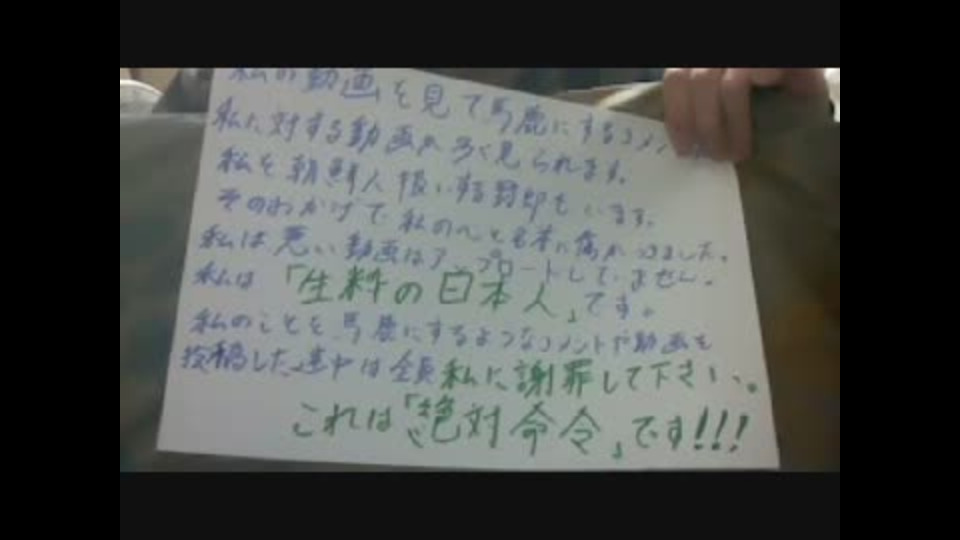 私の動画を見て馬鹿にするコメン
私に対する動画が多く見られます。
私を朝鮮人扱いする野郎もいます。
そのおかげで私の心も名誉に傷がつきました。
私は悪い動画はアップロートしていません。
私は「生粋の日本人」です。
私のことを馬鹿にするようなコメントや動画を
投稿した連中は全員私に謝罪して下さい。
これは「絶対命令」です!!!